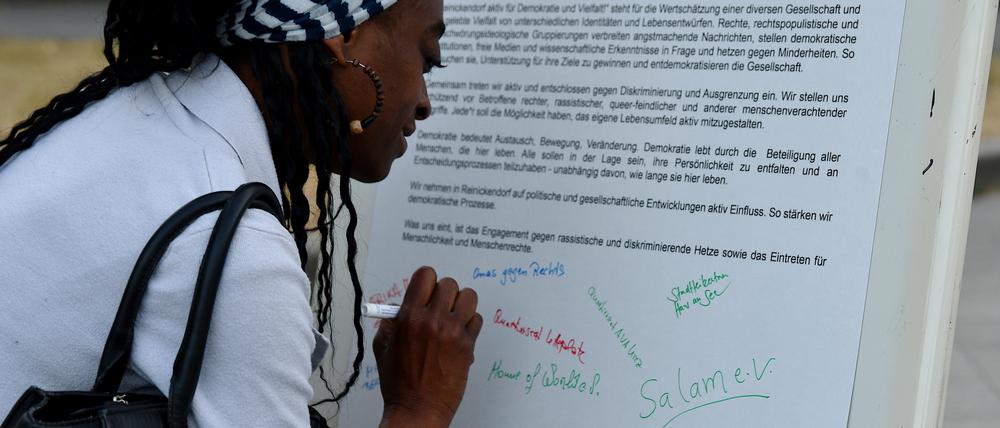 einickendorf aktiv für Demokratie und Vielfalt!" steht für die Wertschätzung einer diversen Gesellschaft und
gelebte Vielfalt von unterschiedlichen Identitäten und Lebensentwürfen. Rechte, rechtspopulistische und
chwörungsideologische Gruppierungen verbreiten angstmachende Nachrichten, stellen demokratische
stitutionen, freie Medien und wissenschaftliche Erkenntnisse in Frage und hetzen gegen Minderheiten. So
uchen sie, Unterstützung für ihre Ziele zu gewinnen und entdemokratisieren die Gesellschaft.
Gemeinsam treten wir aktiv und entschlossen gegen Diskriminierung und Ausgrenzung ein. Wir stellen uns
hützend vor Betroffene rechter, rassistischer, queer-feindlicher und anderer menschenverachtender
griffe. Jede*r soll die Möglichkeit haben, das eigene Lebensumfeld aktiv mitzugestalten.
Demokratie bedeutet Austausch, Bewegung, Veränderung. Demokratie lebt durch die Beteiligung aller
Menschen, die hier leben. Alle sollen in der Lage sein, ihre Persönlichkeit zu entfalten und an
Entscheidungsprozessen teilzuhaben - unabhängig davon, wie lange sie hier leben.
Wir nehmen in Reinickendorf auf politische und gesellschaftliche Entwicklungen aktiv Einfluss. So stärken wir
demokratische Prozesse.
Was uns eint, ist das Engagement gegen rassistische und diskriminierende Hetze sowie das Eintreten für
Menschlichkeit und Menschenrechte.
omas gegen Rechts
Home of
Salam e.V.